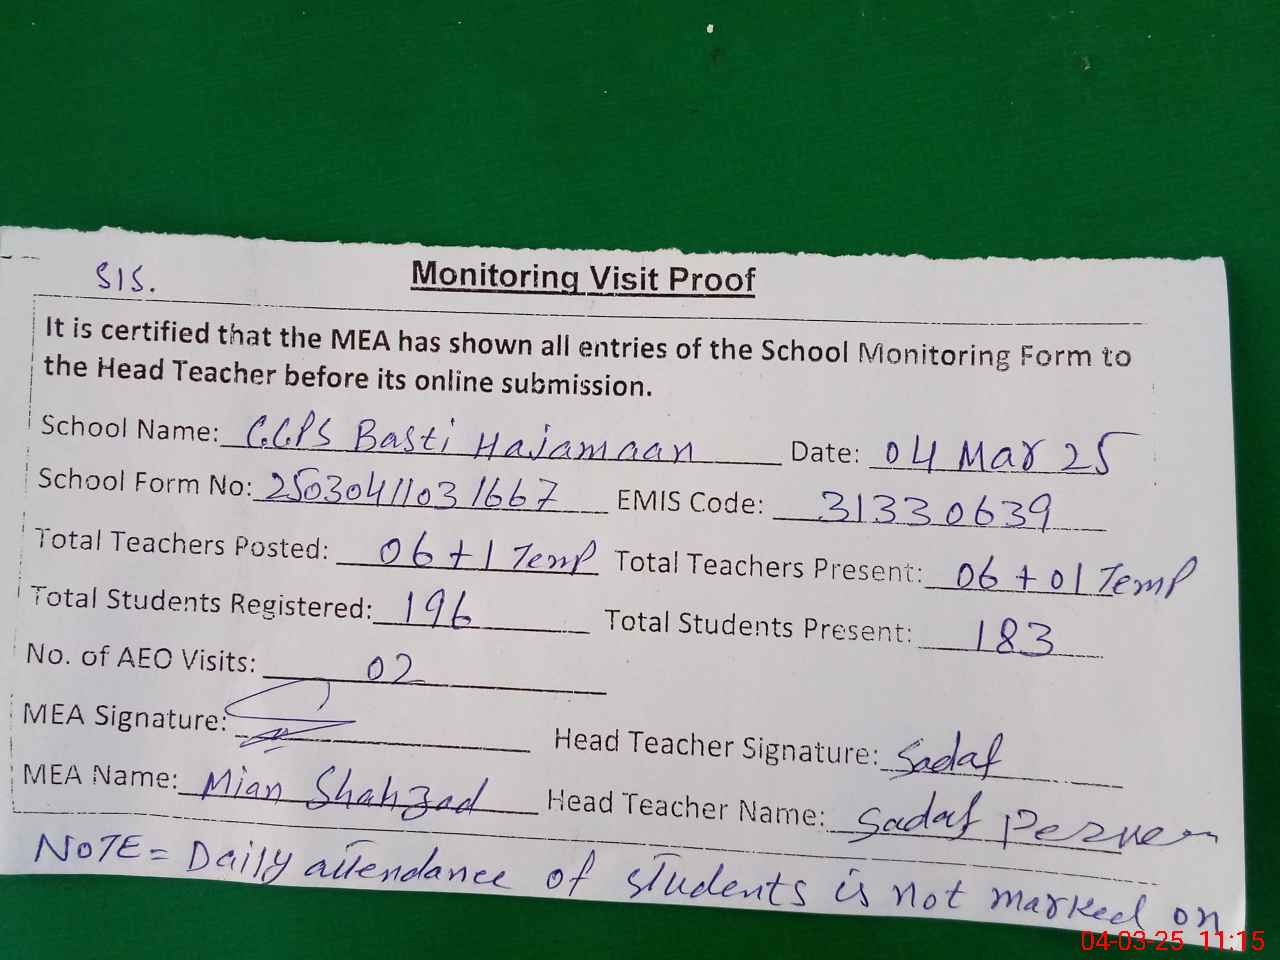 SIS.
Monitoring Visit Proof
It is certified that the MEA has shown all entries of the School Monitoring Form to
the Head Teacher before its online submission.
School Name: G.G.P.S Basti Hajamaan Date: 04 Mar 25
School Form No: 25030411031667 EMIS Code: 31330639
Total Teachers Posted: 06 + 1 Temp Total Teachers Present: 06 + 01 Temp
Total Students Registered: 196 Total Students Present: 183
No. of AEO Visits: 02
MEA Signature: Head Teacher Signature: Sadaf
MEA Name: Mian Shahzad Head Teacher Name: Sadaf Perveen
NOTE = Daily attendance of students is not marked on
04-03-25 11:15